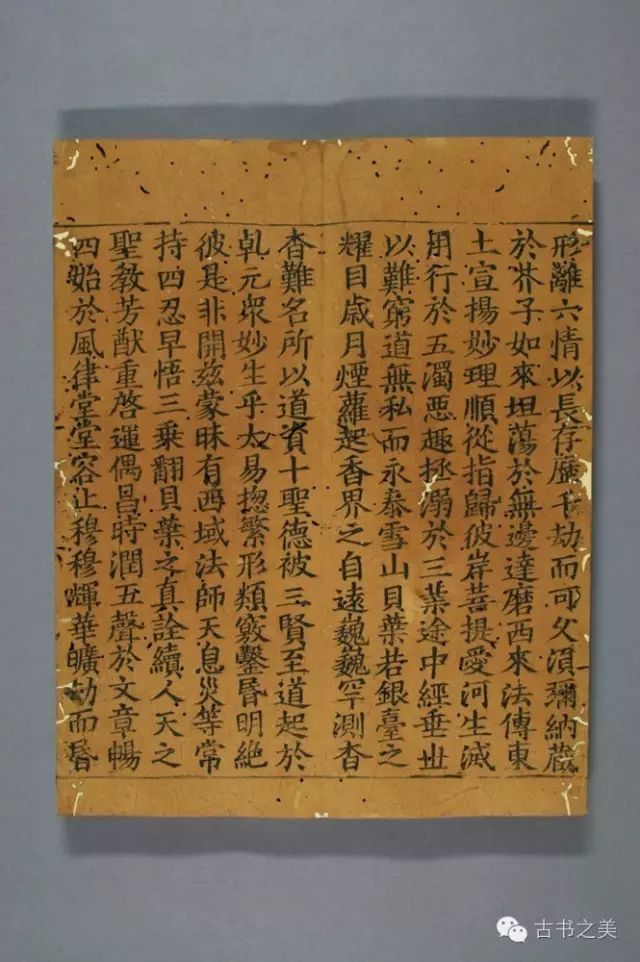 形離六情以長存歷千劫而可久湏彌納藏
於芥子如來坦蕩於無邊達磨西來法傳東
土宣揚妙理順從指歸彼岸菩提愛河生滅
用行於五濁惡趣拯溺於三業途中經垂世
以難窮道無私而永泰雪山貝葉若銀臺之
耀目歲月煙蘿起香界之自遠巍巍罕測杳
杳難名所以道資十聖德被三賢至道起於
乹元衆妙生乎太易揔繁形類竅鑿昏明絶
彼是非開茲蒙昧有西域法師天息災等常
持四忍早悟三乘翻貝葉之真詮續人天之
聖教芳猷重啓運偶昌時潤五聲於文章暢
四始於風律堂堂容止穆穆輝華曠劫而昏
古书之美